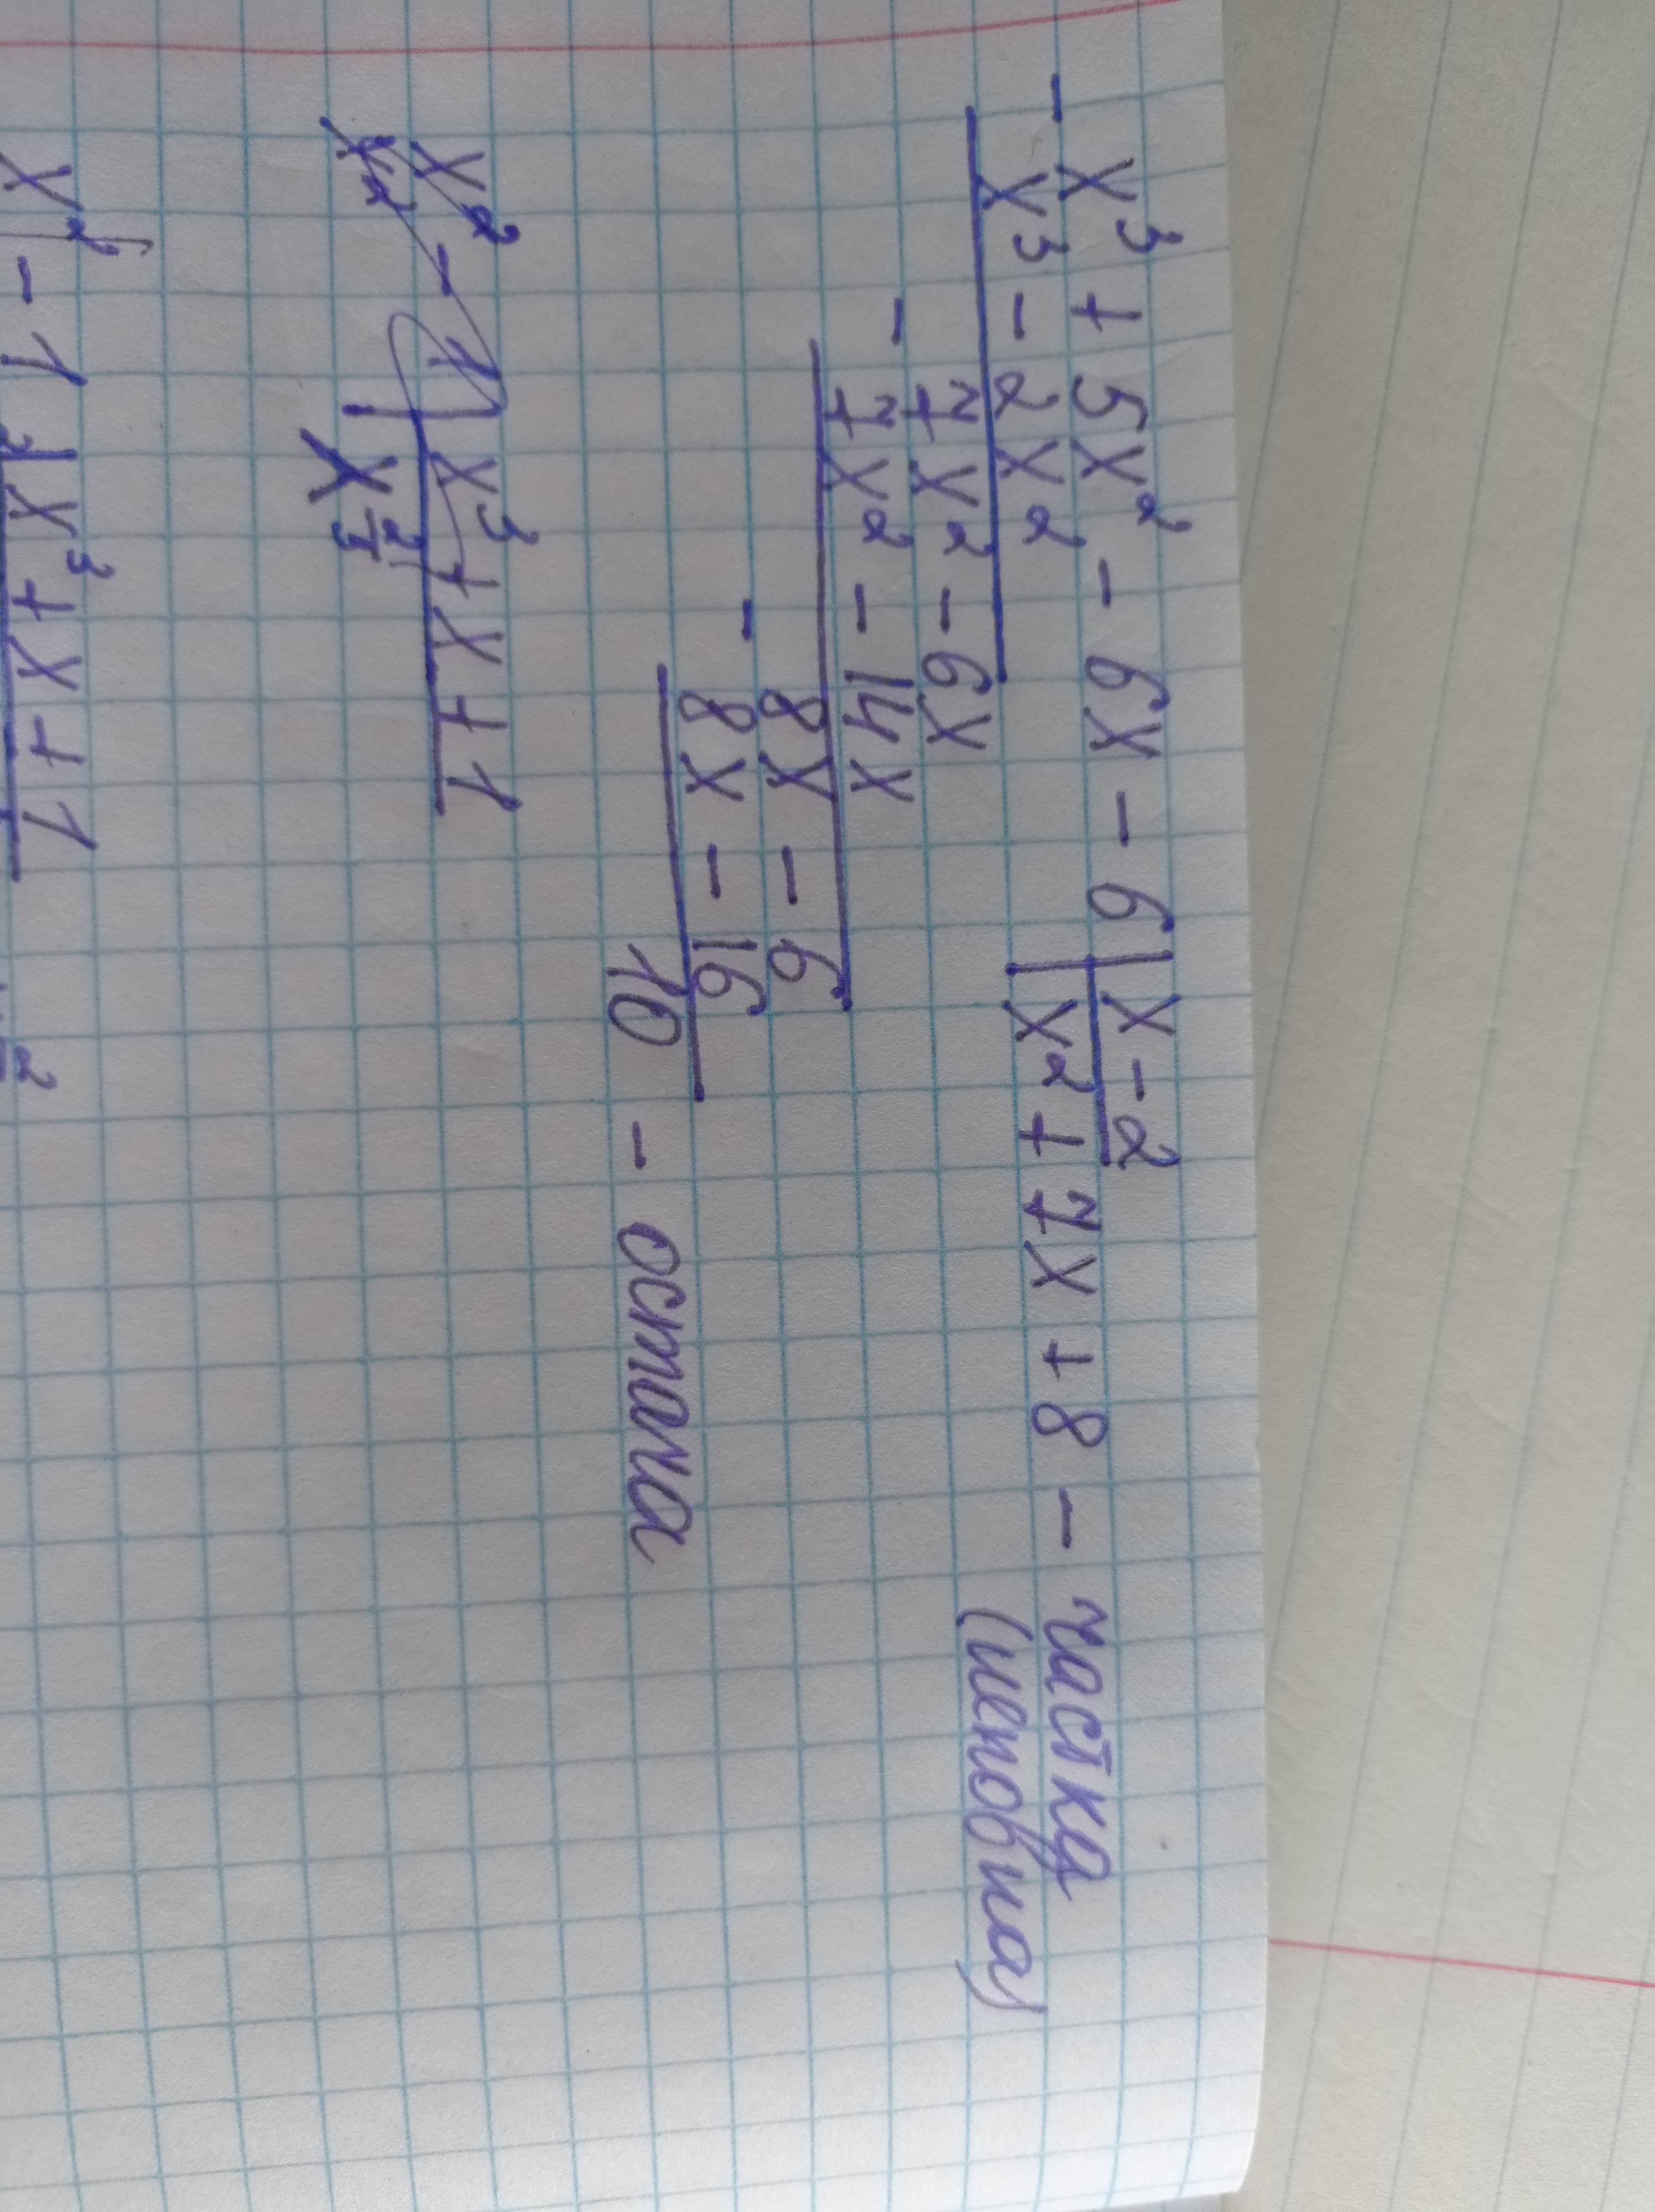 x³ + 5x² - 6x - 6 | x - 2
- x³ - 2x² | x² + 7x + 8 - частка
(неповна)
7x² - 6x
- 7x² - 14x
8x - 6
- 8x - 16
10 - остача
x² - 1 | x³ + x + 1
x² | x^(2/3)
x² - 1 | x³ + x + 1